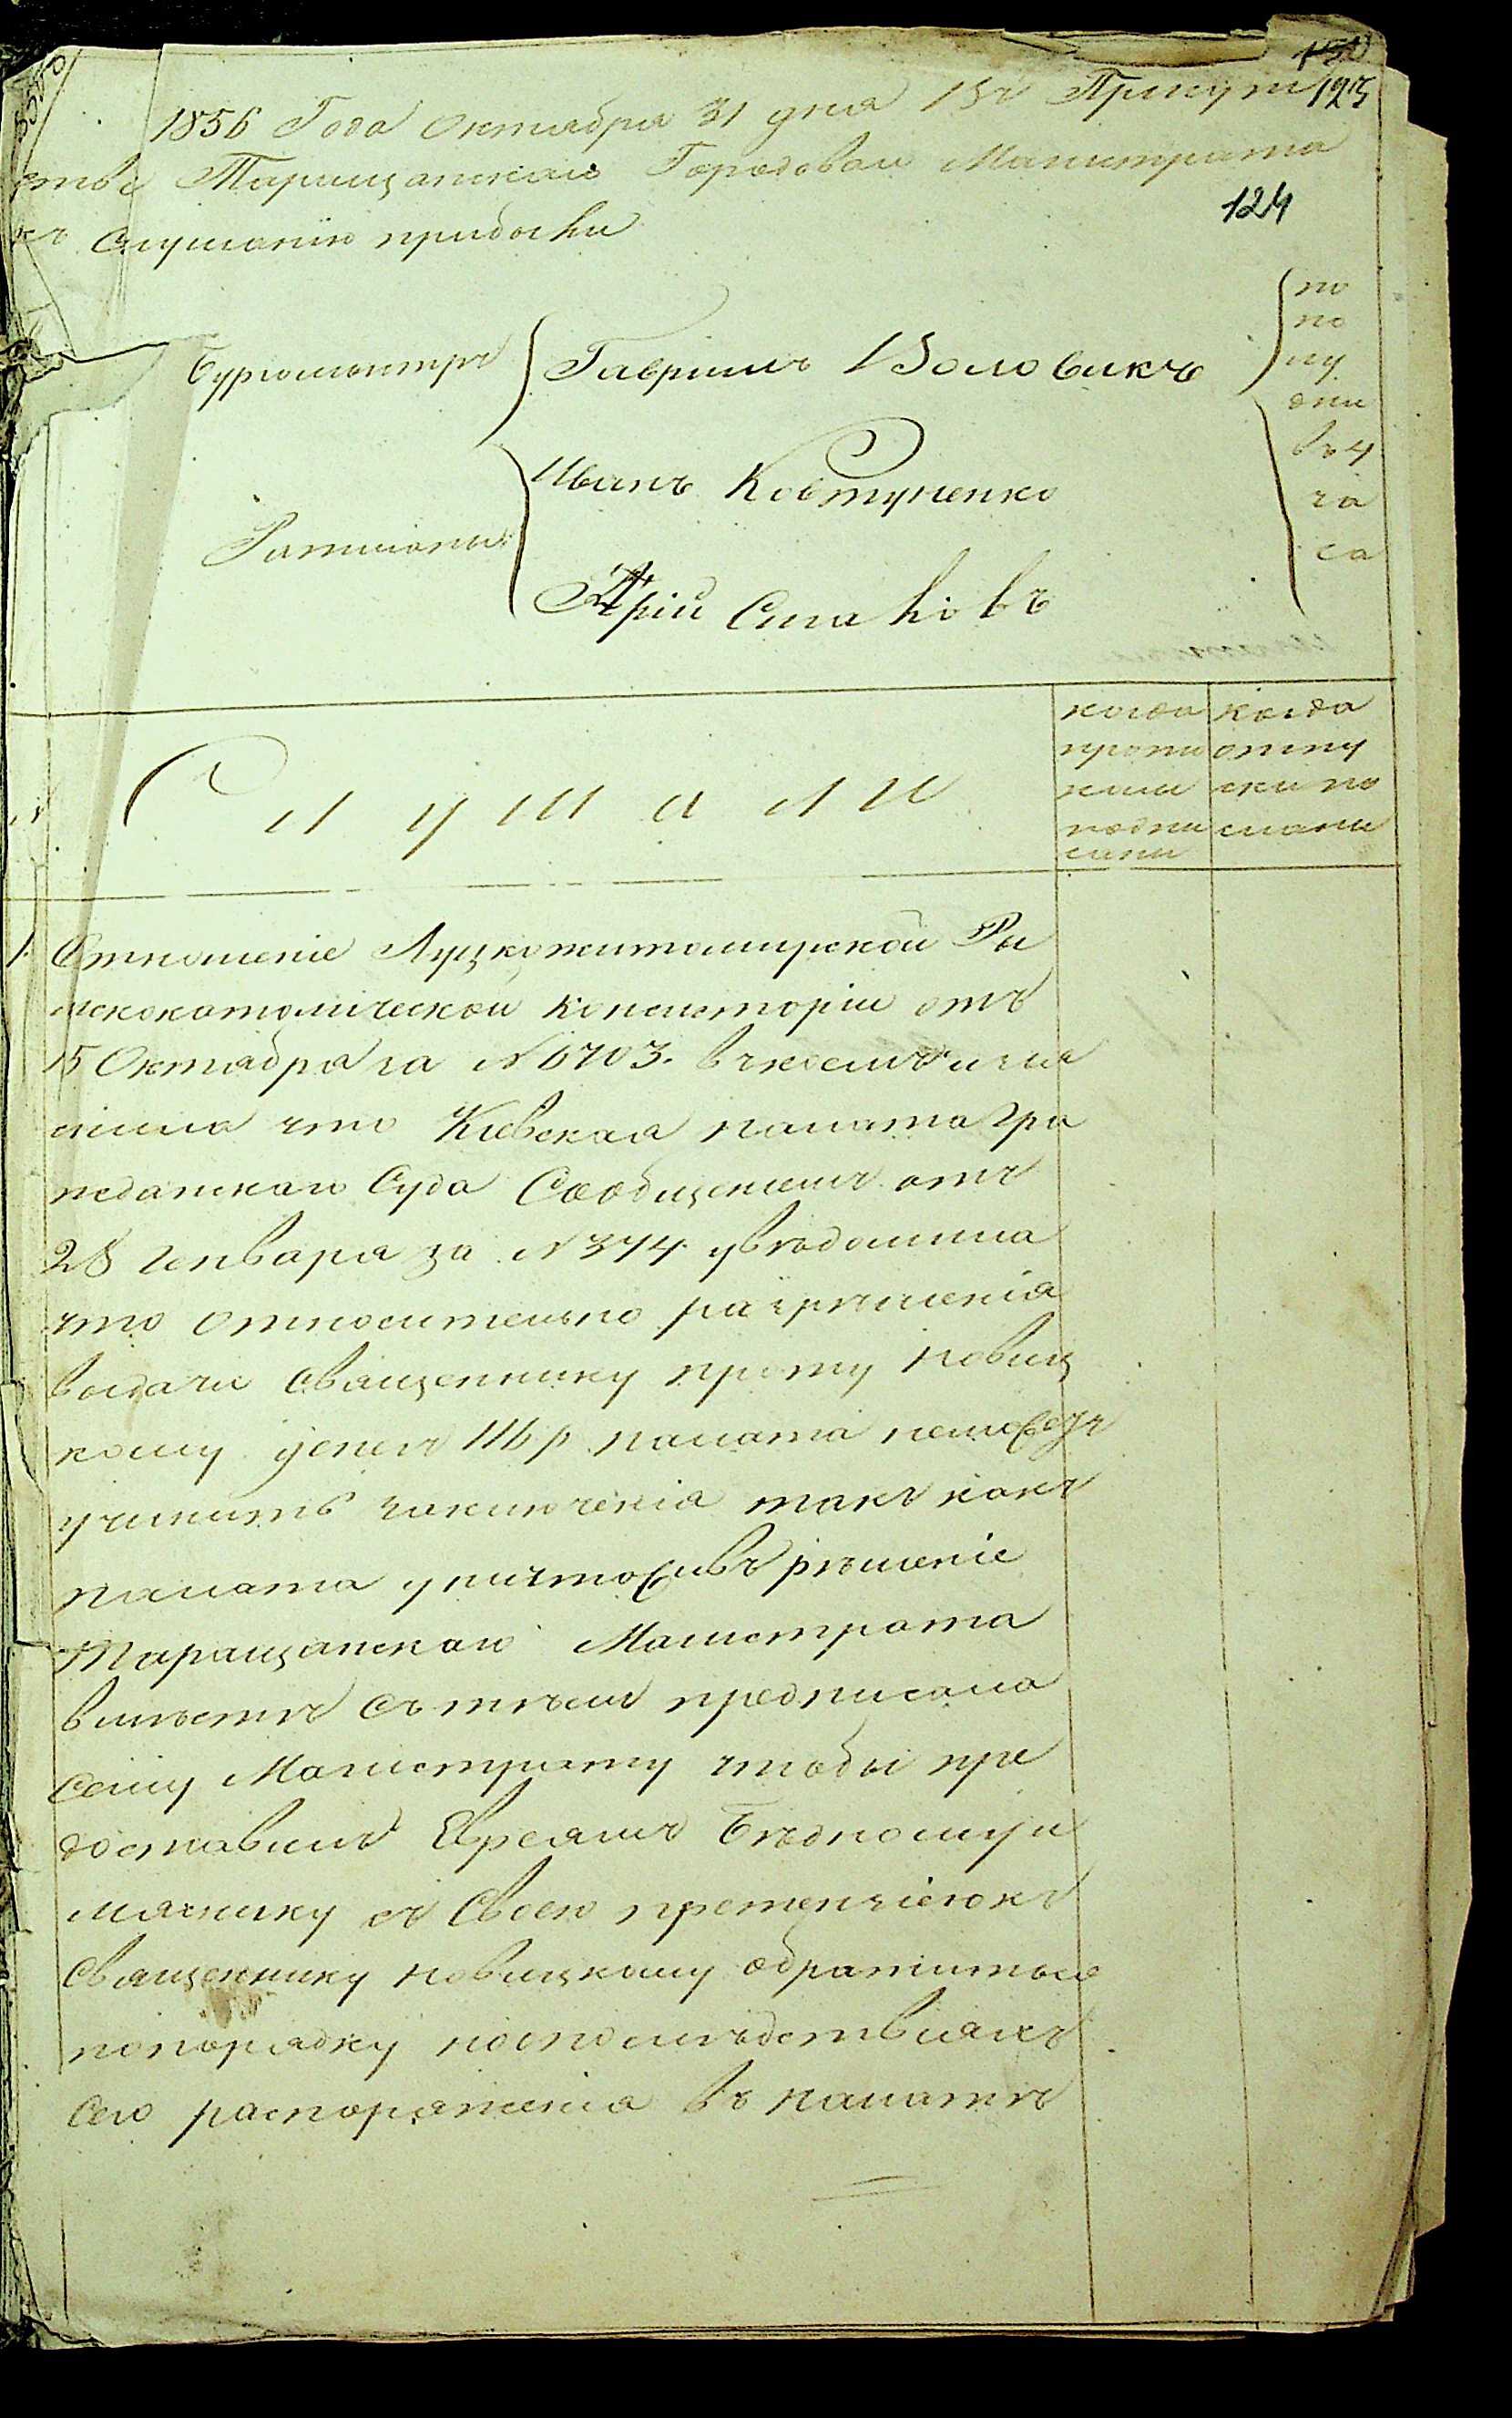 123
1856 Года Октября 31 дня Въ Присут
ствіе Таращанскаго Городоваго Магистрата
124
къ Слушанію прибыли
Бургомистръ
Гавріилъ Воловикъ
Ратманы
Иванъ Ковтуненко
Юрій
по
по
лу
дни
въ 4
ча
са
Слушали
когда
прото
колы
подпи
саны
когда
отпу
ски по
сланы
1. Отношеніе Луцкожитомирской Ри
мскокатолической Консисторіи отъ
15 Октября за N 6703. въ коемъ изъя
снила что Кіевская палата Гра
жданскаго Суда Сообщеніемъ отъ
28 Генваря за N 374. увѣдомила
что относительно разрѣшенія
выдачи Священнику Новиц
кому денегъ палата неможетъ
учинить заключенія такъ какъ
палата уничтоживъ рѣшеніе
Таращанскаго Магистрата
вмѣстѣ съ тѣмъ предписала
Сему Магистрату чтобы пре
доставилъ Евреямъ Бѣдному и
съ Своею претензіею къ
Священнику Новицкому обратиться
попорядку
Сего распоряженія въ палатѣ